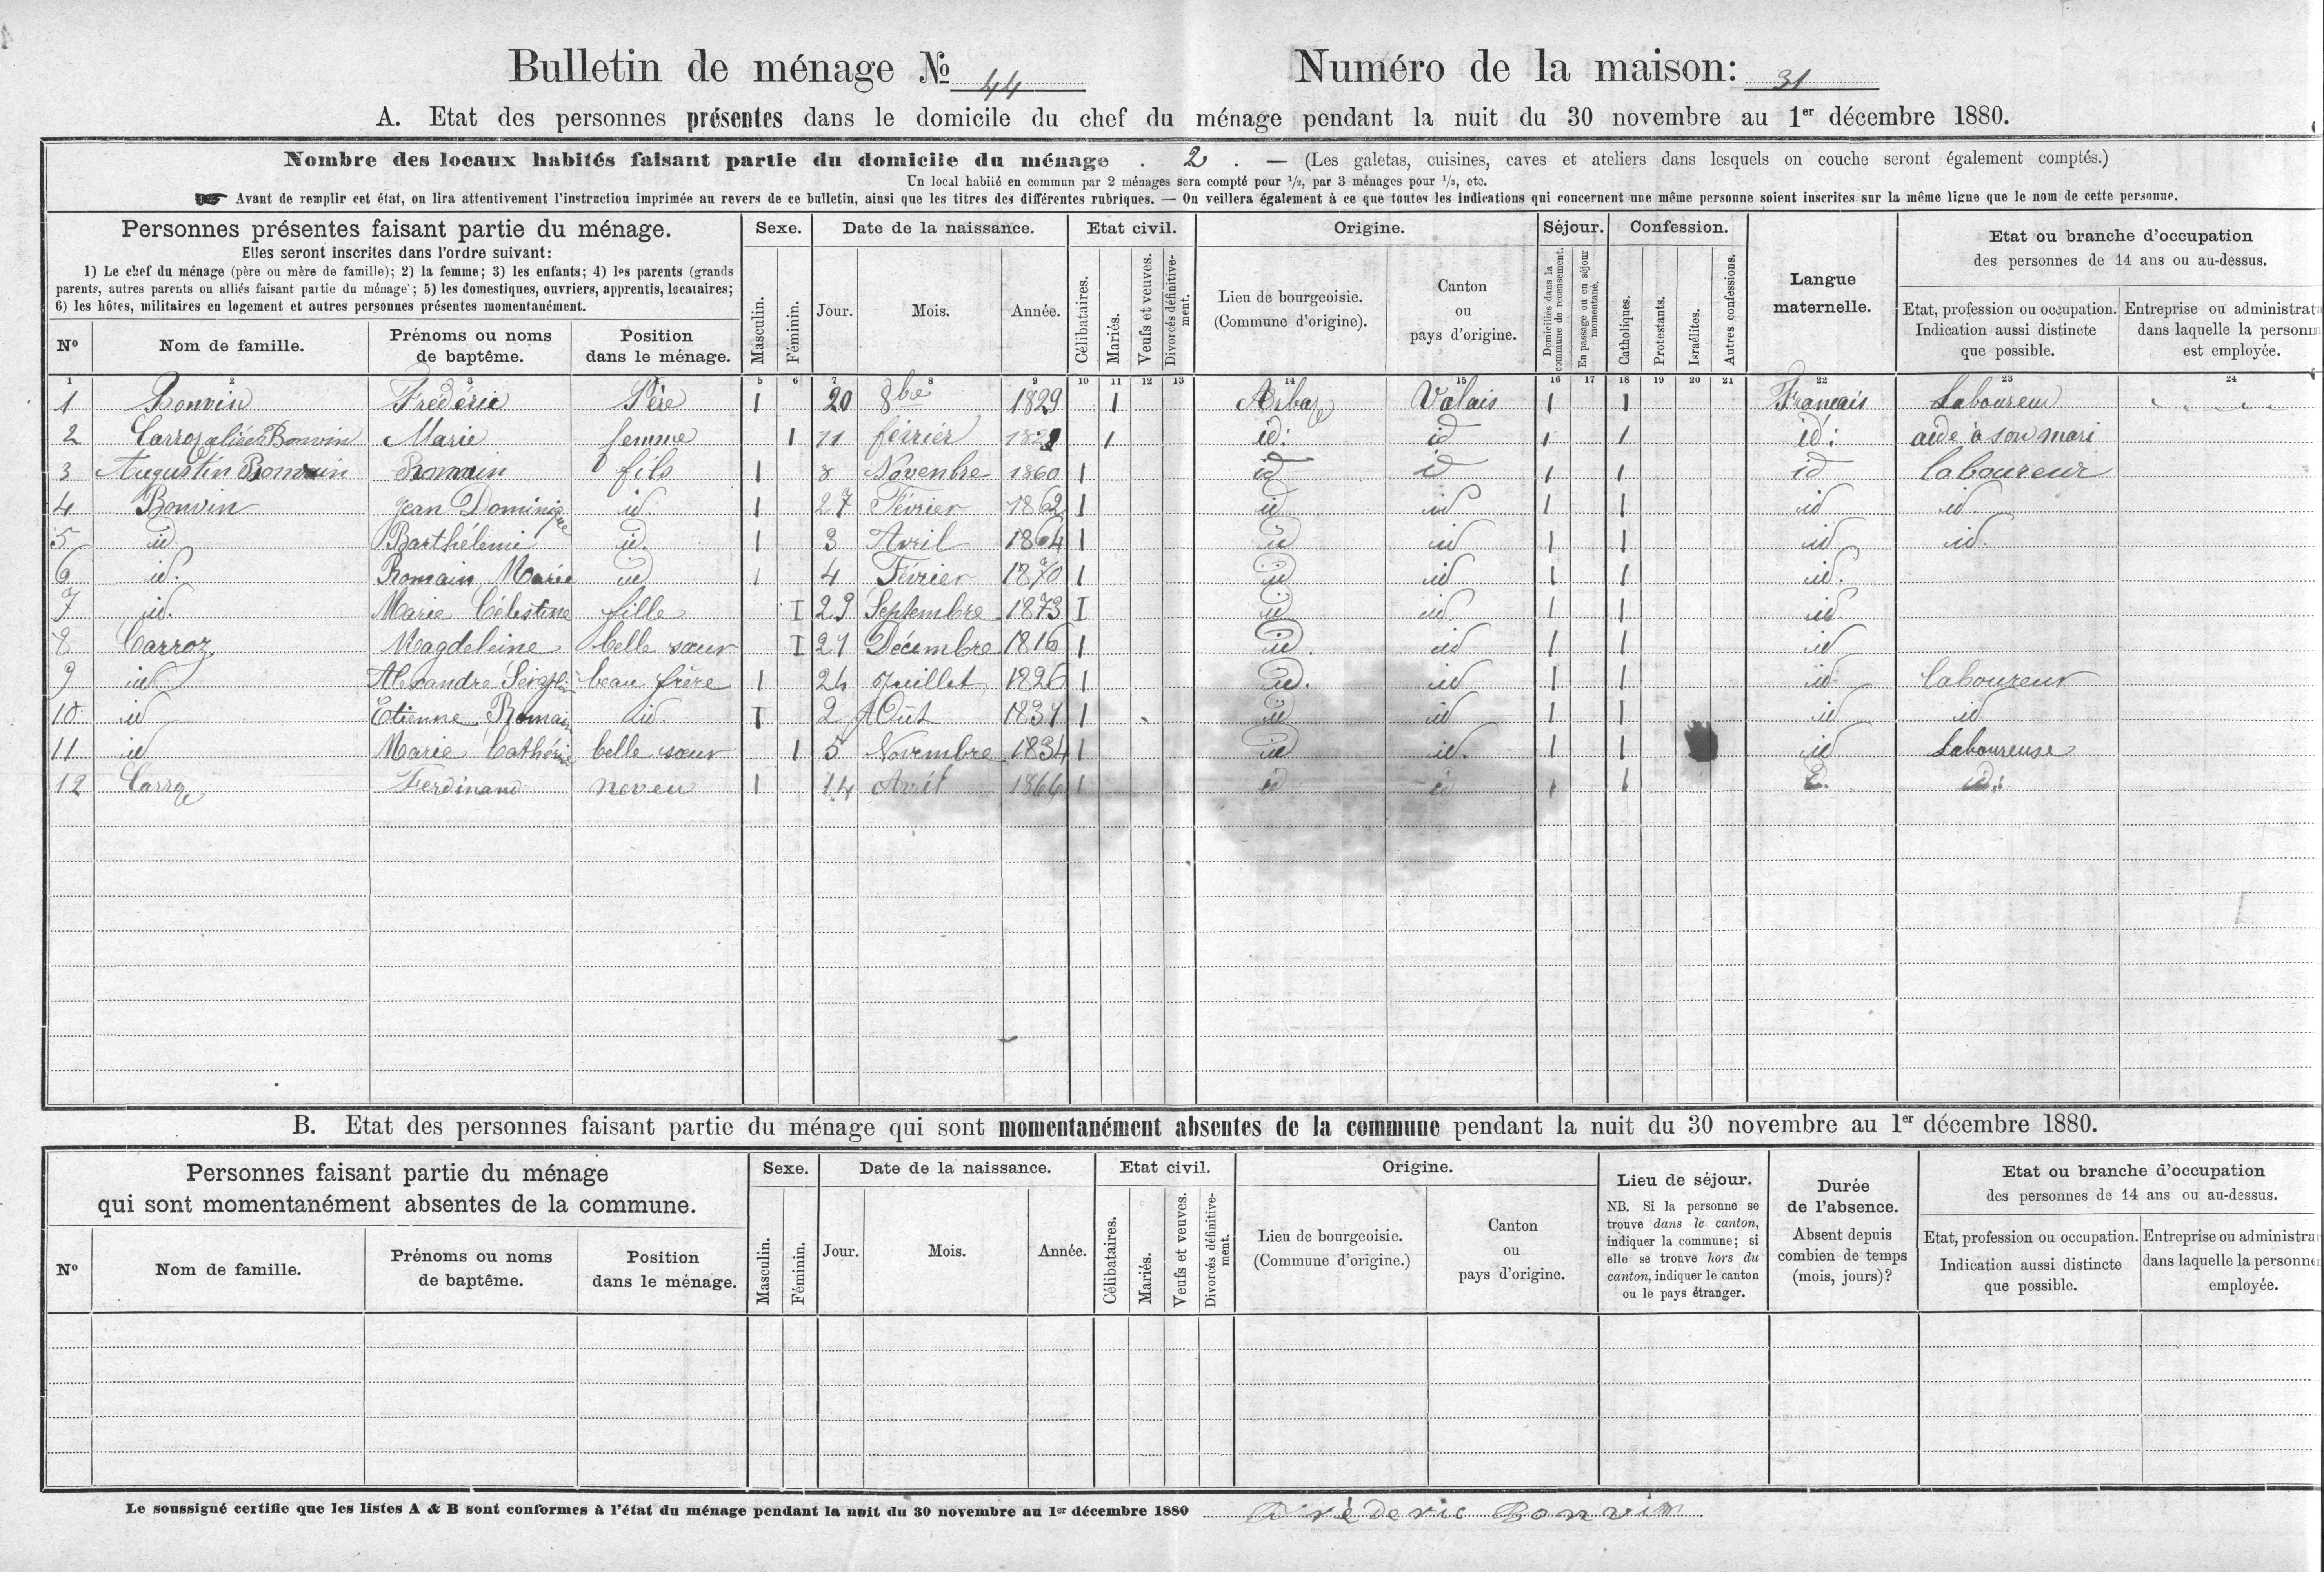 Bulletin de ménage No 44 Numéro de la maison: 31
A. Etat des personnes présentes dans le domicile du chef du ménage pendant la nuit du 30 novembre au 1er décembre 1880.
Nombre des locaux habités faisant partie du domicile du ménage . 2 . — (Les galetas, cuisines, caves et ateliers dans lesquels on couche seront également comptés.)
Un local habité en commun par 2 ménages sera compté pour 1/2, par 3 ménages pour 1/3, etc.
Avant de remplir cet état, on lira attentivement l'instruction imprimée au revers de ce bulletin, ainsi que les titres des différentes rubriques. — On veillera également à ce que toutes les indications qui concernent une même personne soient inscrites sur la même ligne que le nom de cette personne.
Personnes présentes faisant partie du ménage.
Elles seront inscrites dans l'ordre suivant:
1) Le chef du ménage (père ou mère de famille); 2) la femme; 3) les enfants; 4) les parents (grands
parents, autres parents ou alliés faisant partie du ménage; 5) les domestiques, ouvriers, apprentis, locataires;
6) les hôtes, militaires en logement et autres personnes présentes momentanément.
No
Nom de famille.
Prénoms ou noms
de baptême.
Position
dans le ménage.
Sexe.
Masculin.
Féminin.
Date de la naissance.
Jour.
Mois.
Année.
Etat civil.
Célibataires.
Mariés.
Veufs et veuves.
Divorcés définitive-
ment.
Origine.
Lieu de bourgeoisie.
(Commune d'origine).
Canton
ou
pays d'origine.
Séjour.
Domiciliés dans la
commune de recensement.
En passage ou en séjour
momentané.
Confession.
Catholiques.
Protestants.
Israélites.
Autres confessions.
Langue
maternelle.
Etat ou branche d'occupation
des personnes de 14 ans ou au-dessus.
Etat, profession ou occupation.
Indication aussi distincte
que possible.
Entreprise ou administrat
dans laquelle la personn
est employée.
1 2 3 5 6 7 8 9 10 11 12 13 14 15 16 17 18 19 20 21 22 23 24
1 Bonvin Frédéric Père 1 20 8bre 1829 1 Arbaz Valais 1 1 Français Laboureur
2 Carroz Bonvin Marie femme 1 11 février 1 id: id 1 1 id: aide à son mari
3 Augustin Bonvin Romain fils 1 8 Novenbre 1860 1 id id 1 1 id laboureur
4 Bonvin Jean Dominique id. 1 27 Février 1862 1 id id 1 1 id id.
5 id Barthélemi id. 1 3 Avril 1864 1 id id 1 1 id id.
6 id. Romain Marie id 1 4 Février 1870 1 id id 1 1 id.
7 id. Marie Célestine fille I 29 Septembre 1873 I id id 1 1 id.
8 Carroz Magdeleine belle sœur I 21 Décembre 1816 1 id. id 1 1 id
9 id Alexandre beau frère 1 24 Juillet 1826 1 id. id 1 1 id laboureur
10 id Etienne Romain id. I 2 Août 1831 1 id id 1 1 id id
11 id Marie Cathérine belle sœur 1 5 Novembre 1834 1 id id. 1 1 id Laboureuse
12 Carroz Ferdinand neveu 1 14 Avril 1866 1 id id 1 1 id:
B. Etat des personnes faisant partie du ménage qui sont momentanément absentes de la commune pendant la nuit du 30 novembre au 1er décembre 1880.
Personnes faisant partie du ménage
qui sont momentanément absentes de la commune.
No
Nom de famille.
Prénoms ou noms
de baptême.
Position
dans le ménage.
Sexe.
Masculin.
Féminin.
Date de la naissance.
Jour.
Mois.
Année.
Etat civil.
Célibataires.
Mariés.
Veufs et veuves.
Divorcés définitive-
ment.
Origine.
Lieu de bourgeoisie.
(Commune d'origine.)
Canton
ou
pays d'origine.
Lieu de séjour.
NB. Si la personne se
trouve dans le canton,
indiquer la commune; si
elle se trouve hors du
canton, indiquer le canton
ou le pays étranger.
Durée
de l'absence.
Absent depuis
combien de temps
(mois, jours)?
Etat ou branche d'occupation
des personnes de 14 ans ou au-dessus.
Etat, profession ou occupation.
Indication aussi distincte
que possible.
Entreprise ou administra
dans laquelle la personne
employée.
Le soussigné certifie que les listes A & B sont conformes à l'état du ménage pendant la nuit du 30 novembre au 1er décembre 1880 Fréderic Bonvin